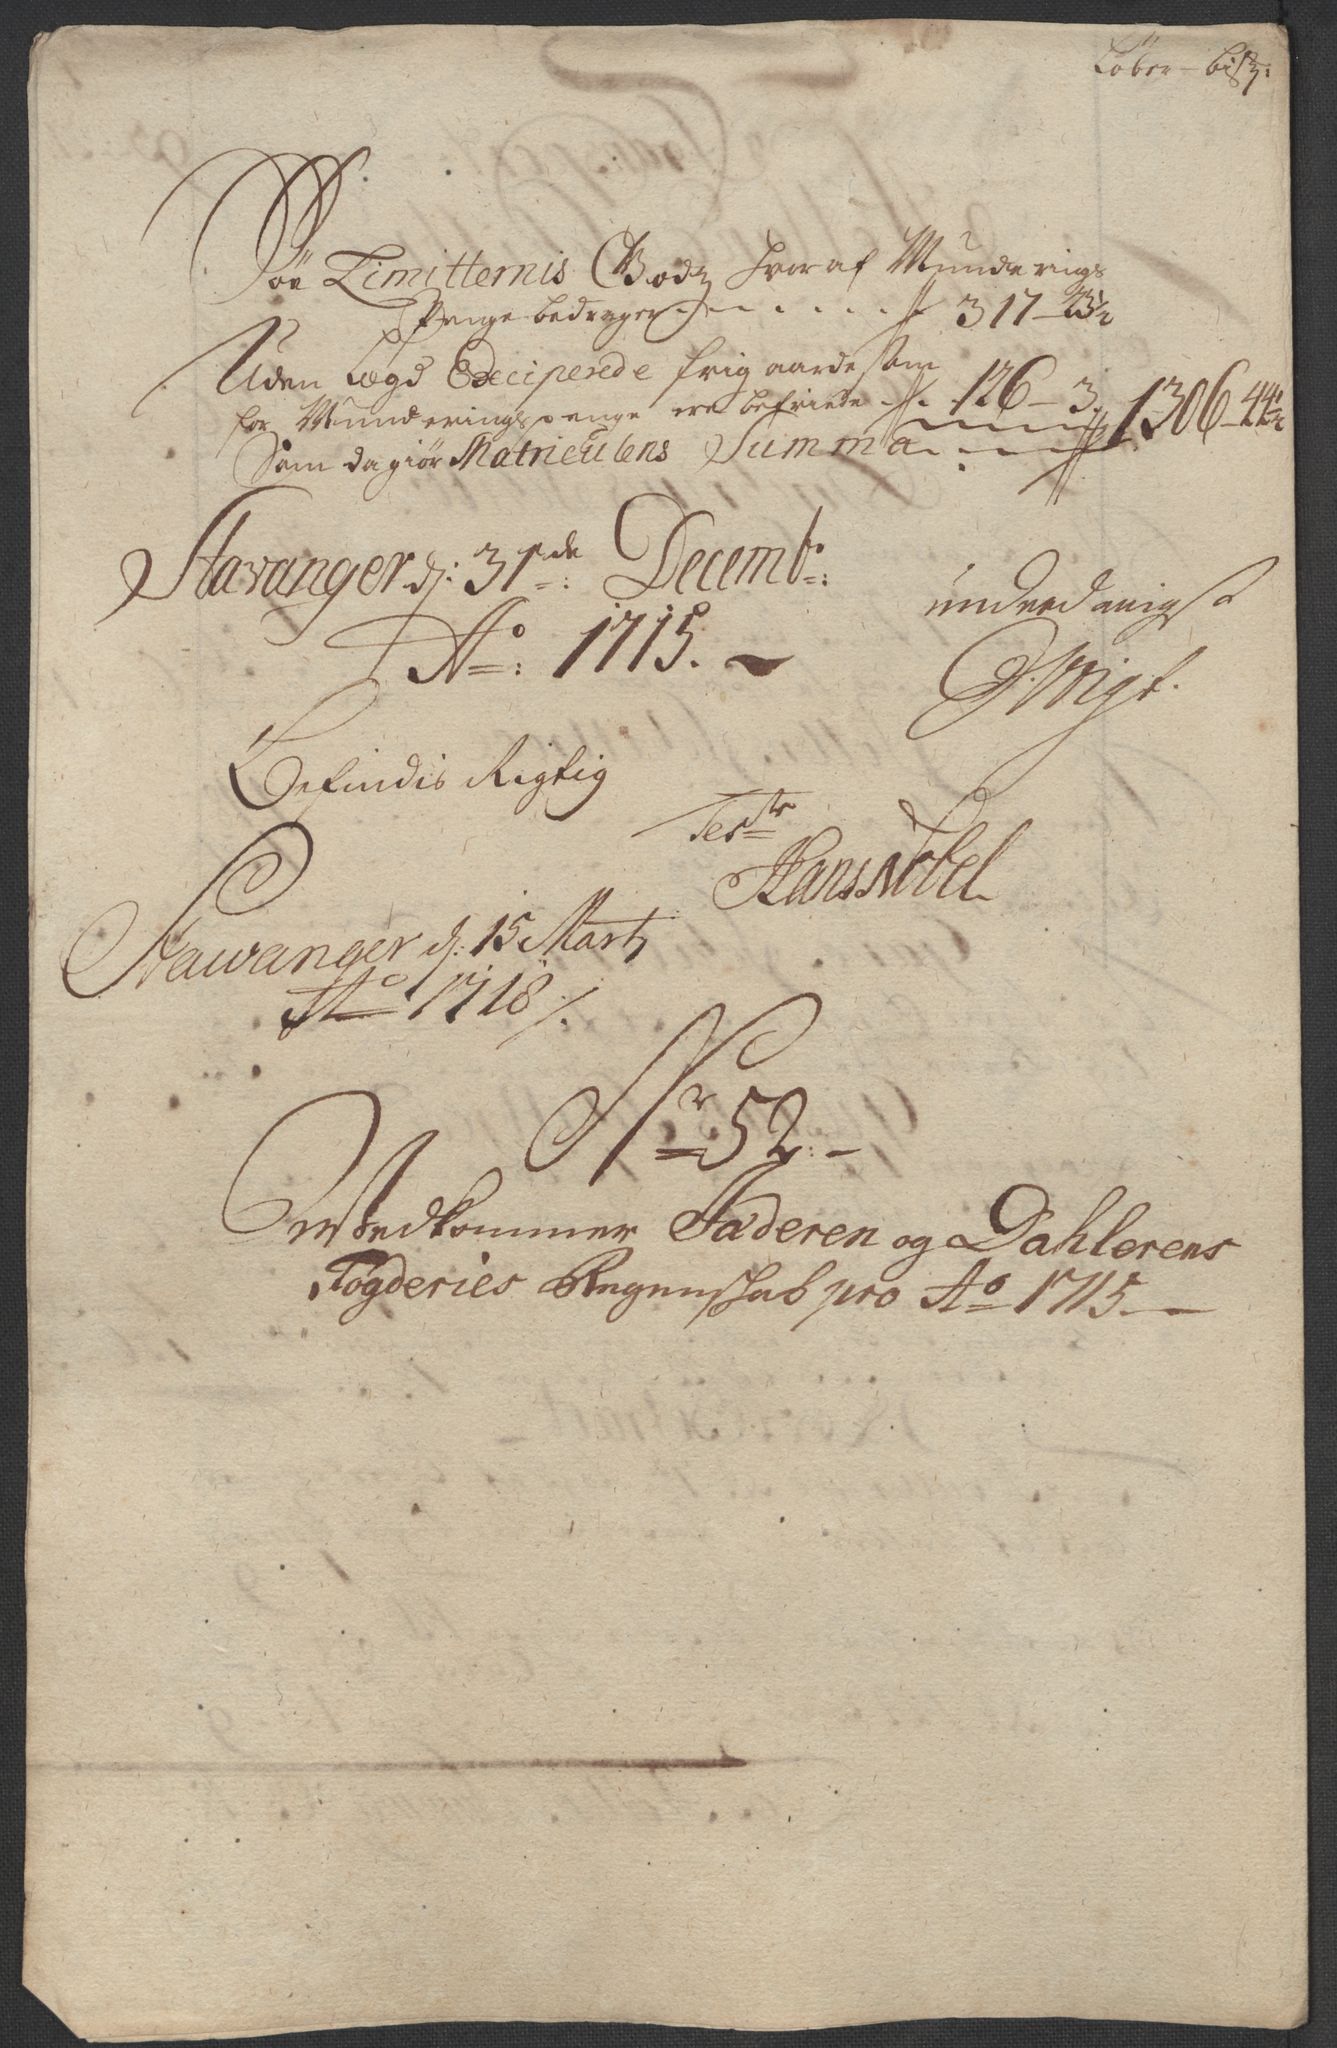 Løber – bisz:
Søe Limitternis Godz hvoraf Munderings
Penge bedrager 317 – 23½
Uden Lægd Decciperede frig aarde som
for Munderings penge ere befriede 126 – 3. 1306 – 44½
Som da giør Matriculens Summa
Stavanger d: 31de Decemb:
Ao: 1715.
underdanigst
Befindis Rigtig
Test
Hans Nobel
Stawanger d: 15 Marty
Ao 1718 /.
Nr 52.
Vedkommer Jæderen og Dahlerens
Fogderies Regenskab pro Ao 1715